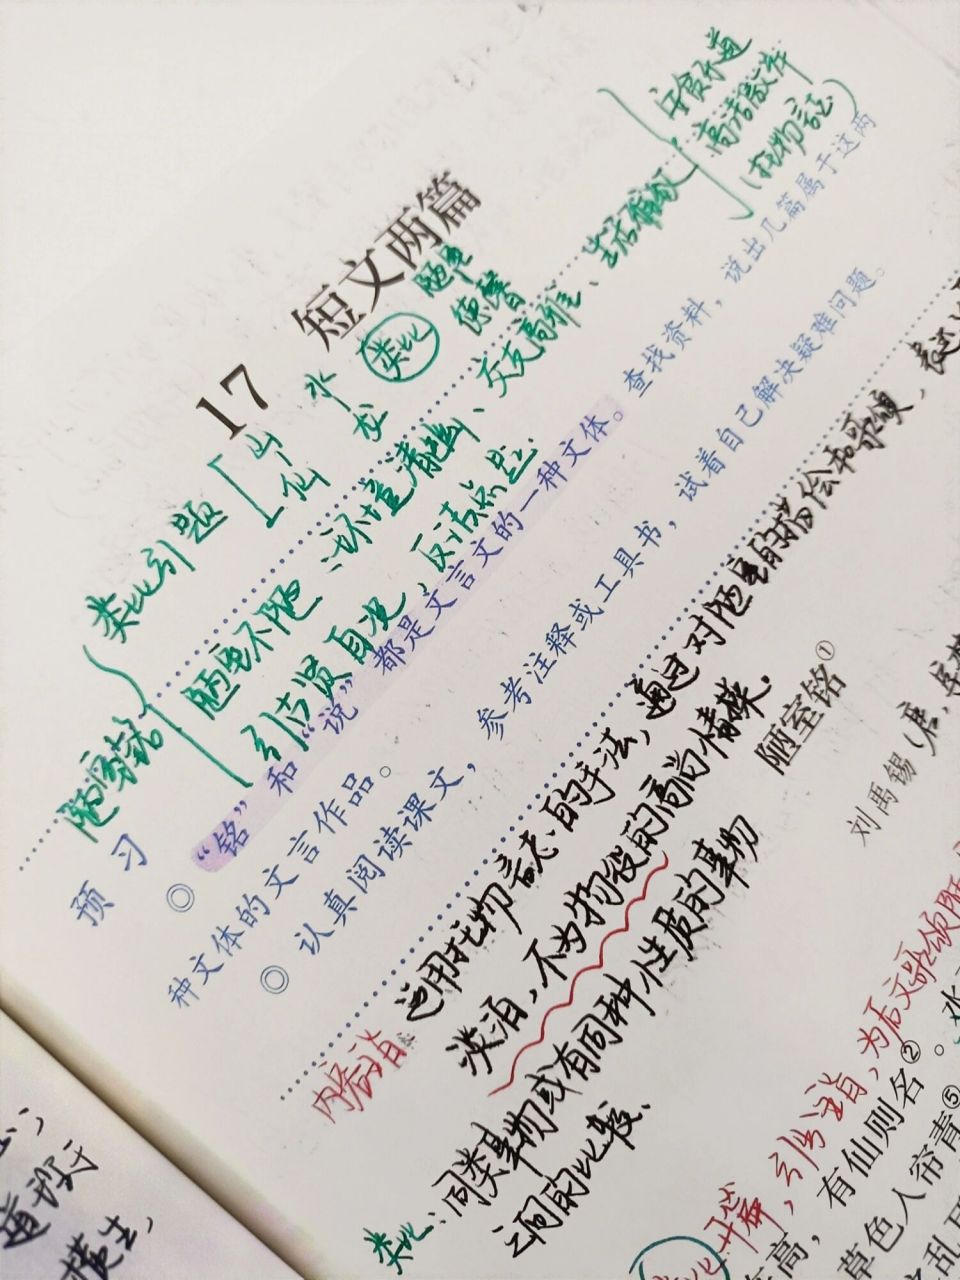 安贫乐道
高洁傲岸
(托物言志)
17 短文两篇
陋室
德馨
类比
水
龙
山
仙
类比引题
陋室铭
陋室不陋:环境清幽、交友高雅、生活
引古贤自况,反诘点题
预习
◎“铭”和“说”都是文言文的一种文体。查找资料,说出几篇属于这两
种文体的文言作品。
◎认真阅读课文,参考注释或工具书,试着自己解决疑难问题。
内容主旨:运用托物言志的手法,通过对陋室的描绘和歌颂,表达
淡泊,不为物役的高尚情操.
类比:同类事物或有同种性质的事物
之间的比较.
陋室铭①
刘禹锡(唐
类比开篇,引出主旨,为后文歌颂陋
高,有仙则名②。水
草色入帘青⑤
乱